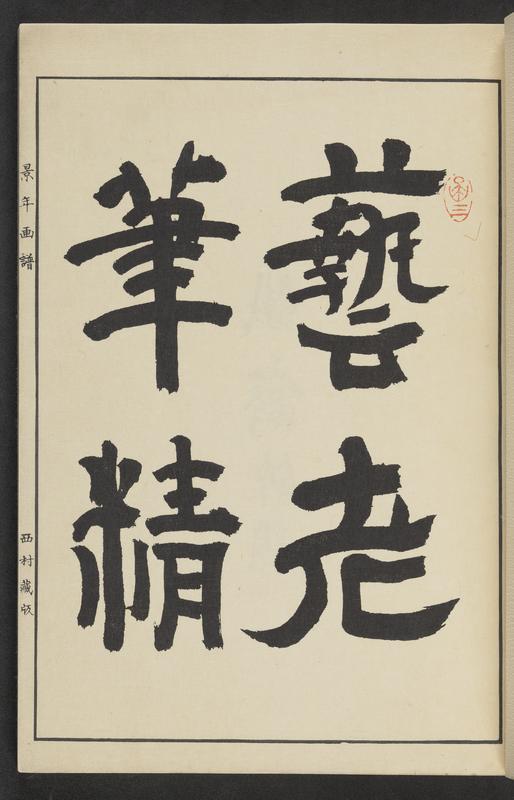 藝老
筆精
景年画譜
西村藏版